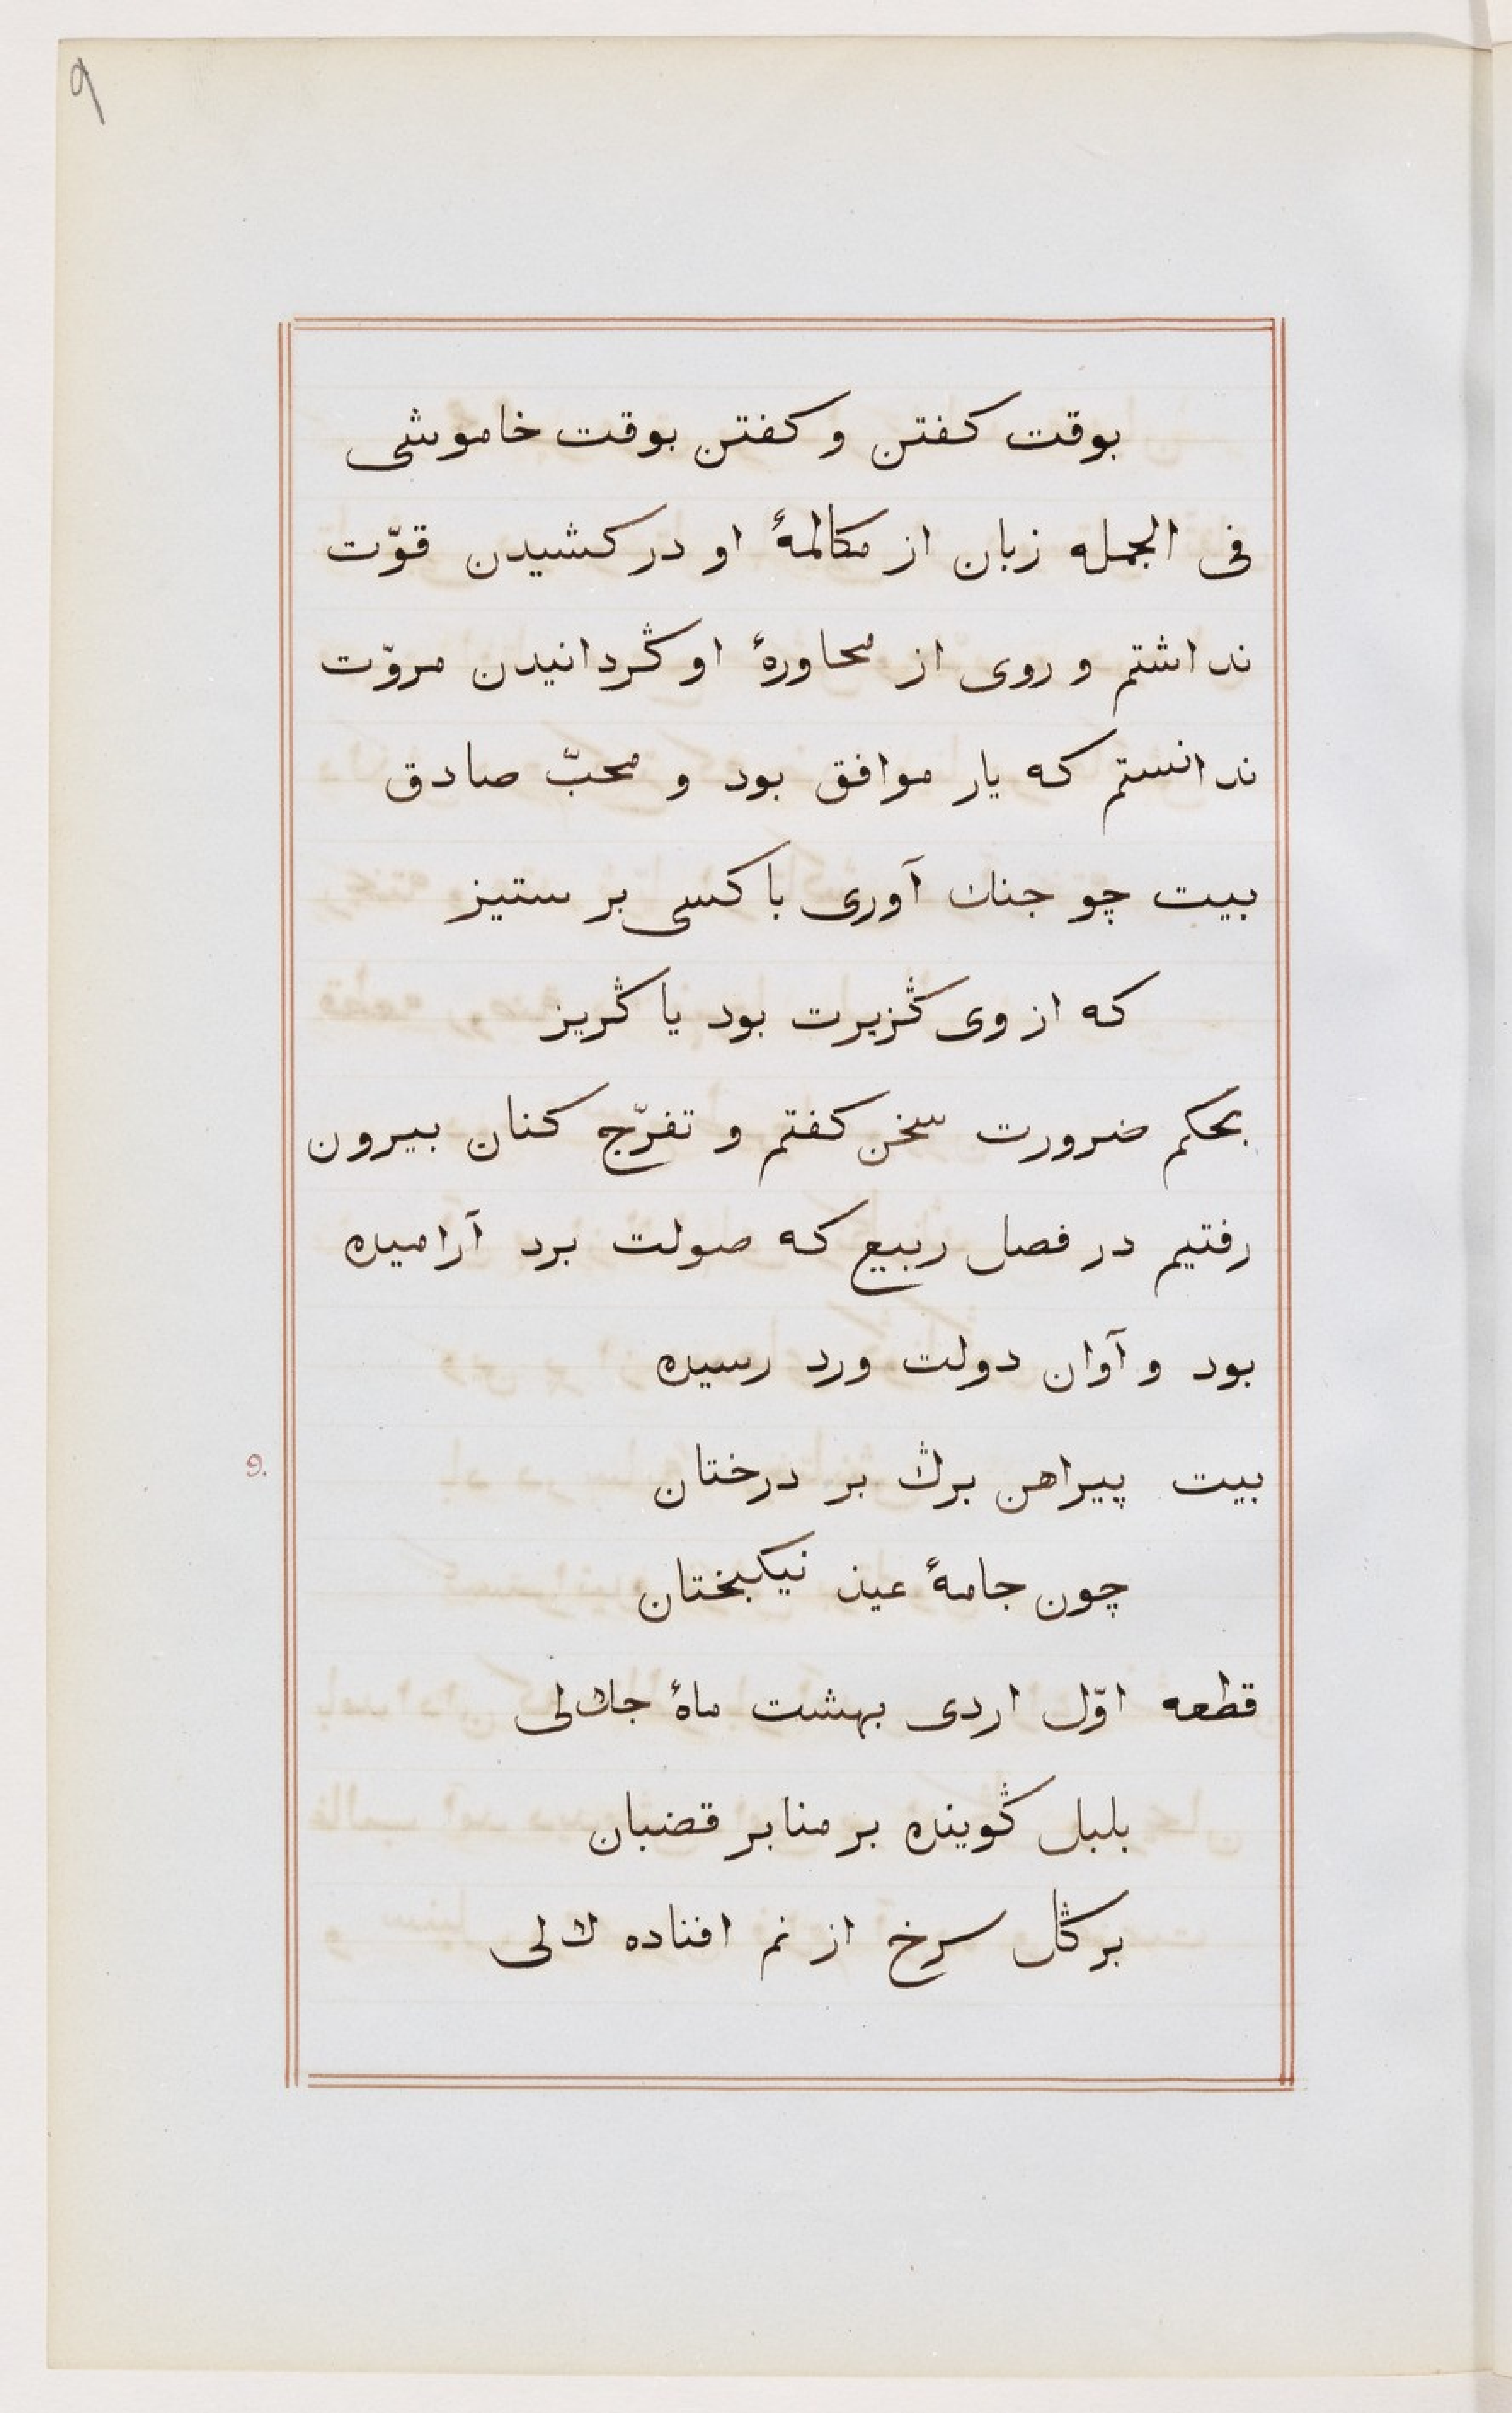 ۹
بوقت کفتن و کفتن بوقت خاموشی
فی الجمله زبان از مکالمهٔ او در کشیدن قوّت
نداشتم و روی از محاورهٔ او ڭردانیدن مروّت
ندانستم که یار موافق بود و محبّ صادق
بیت چو جنك آوری با کسی بر ستیز
که از وی ڭزیرت بود یا ڭریز
بحکم ضرورت سخن کفتم و تفرّج کنان بیرون
رفتیم در فصل ربیع که صولت برد آرامیده
بود و آوان دولت ورد رسیده
بیت پیراهن برڭ بر درختان
چون جامهٔ عید نیکبختان
قطعه اوّل اردی بهشت ماهٔ جلالی
بلبل ڭوینده بر منابر قضبان
بر ڭل سرخ از نم افتاده لالی
9.